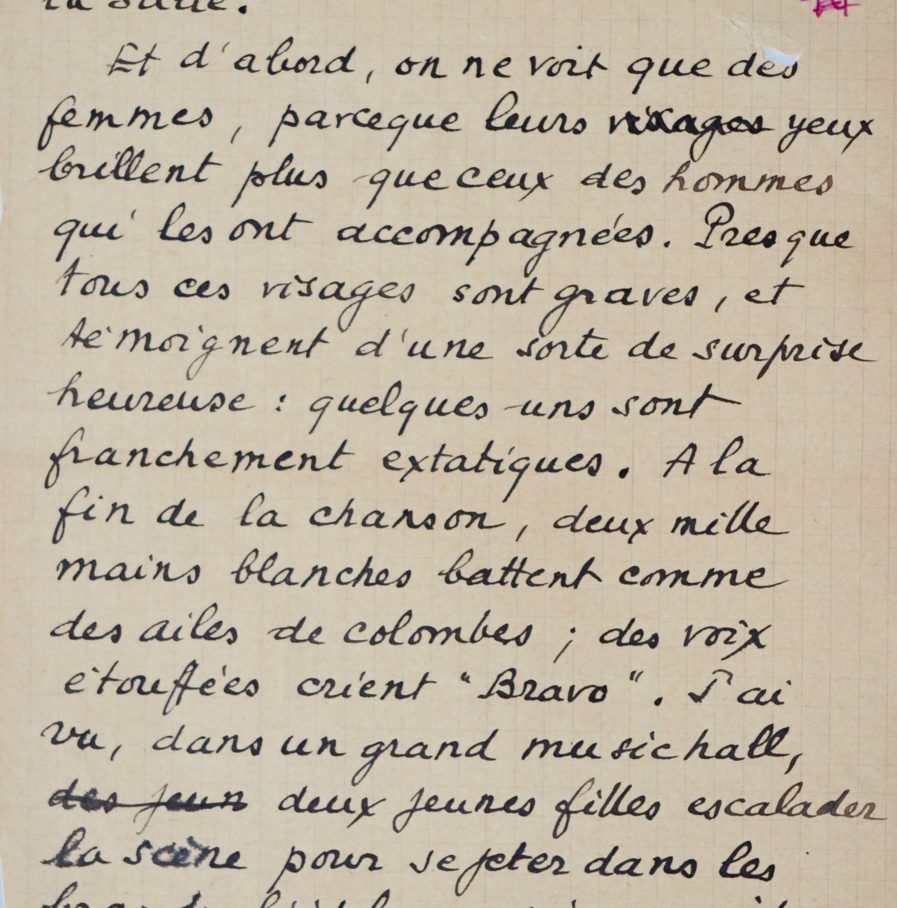 la salle.
Et d'abord, on ne voit que des
femmes, parceque leurs visages yeux
brillent plus que ceux des hommes
qui les ont accompagnées. Presque
tous ces visages sont graves, et
témoignent d'une sorte de surprise
heureuse : quelques-uns sont
franchement extatiques. A la
fin de la chanson, deux mille
mains blanches battent comme
des ailes de colombes ; des voix
étouffées crient "Bravo". J'ai
vu, dans un grand music hall,
des jeun deux jeunes filles escalader
la scène pour se jeter dans les